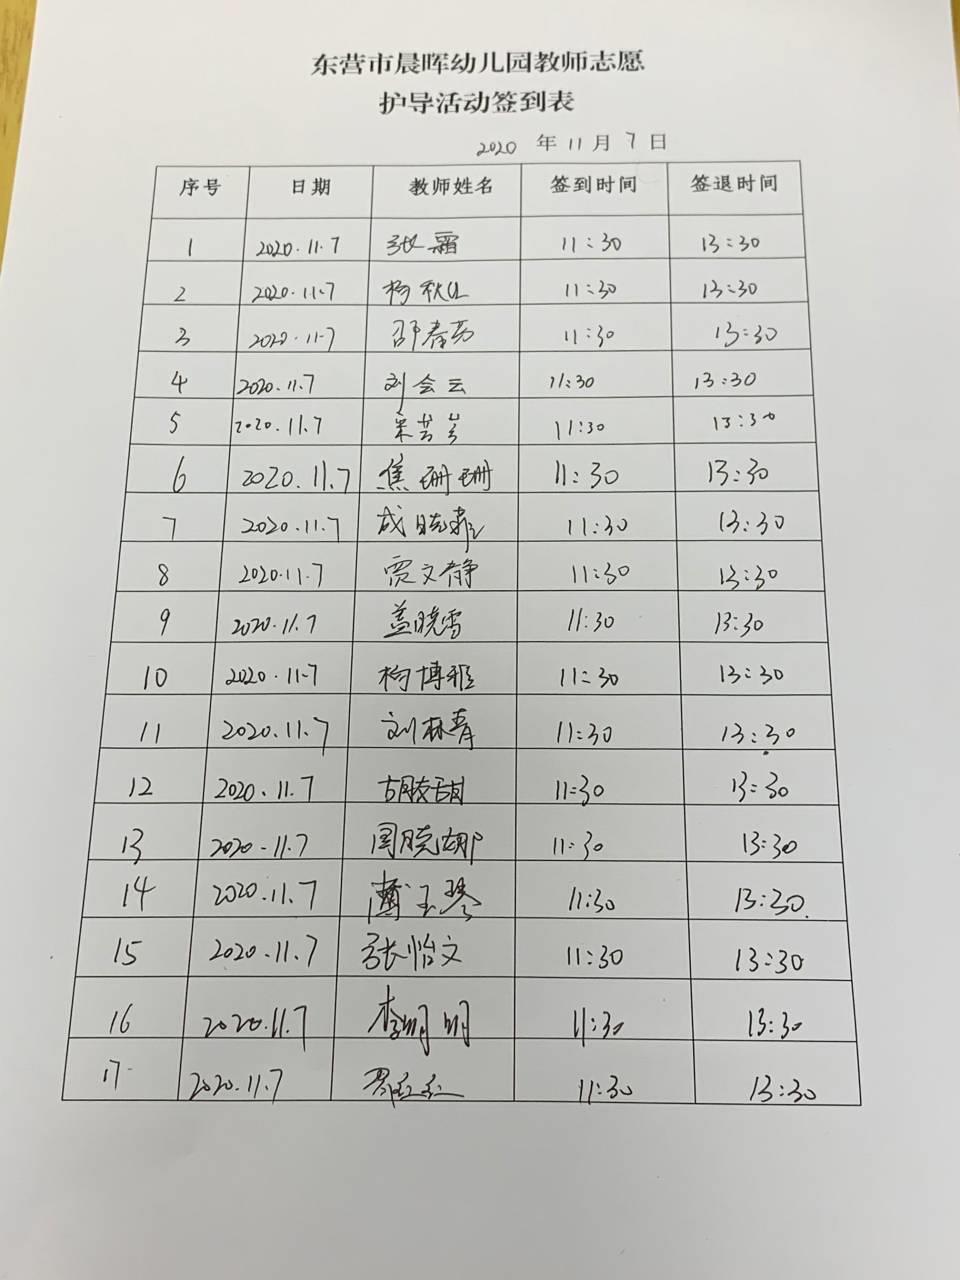 东营市晨晖幼儿园教师志愿
护导活动签到表
2020 年 11 月 7 日
序号 日期 教师姓名 签到时间 签退时间
1 2020.11.7 张霜 11:30 13:30
2 2020.11.7 杨秋 11:30 13:30
3 2020.11.7 邵春芳 11:30 13:30
4 2020.11.7 刘会云 11:30 13:30
5 2020.11.7 11:30 13:30
6 2020.11.7 焦珊珊 11:30 13:30
7 2020.11.7 成晓菲 11:30 13:30
8 2020.11.7 贾文静 11:30 13:30
9 2020.11.7 盖晓雪 11:30 13:30
10 2020.11.7 杨博雅 11:30 13:30
11 2020.11.7 刘林青 11:30 13:30
12 2020.11.7 11:30 13:30
13 2020.11.7 周晓娜 11:30 13:30
14 2020.11.7 玉琴 11:30 13:30
15 2020.11.7 张怡文 11:30 13:30
16 2020.11.7 李明明 11:30 13:30
17 2020.11.7 11:30 13:30